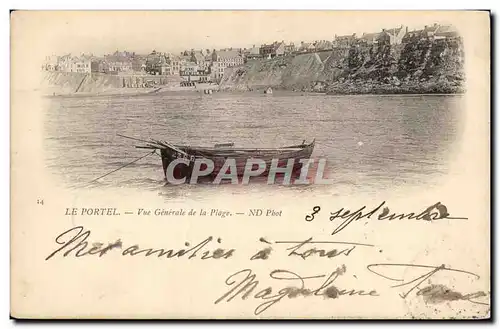 CPAPHIL
14
LE PORTEL. — Vue Générale de la Plage. — ND Phot
3 septembre
Mes amitiés à tous
Magdeleine